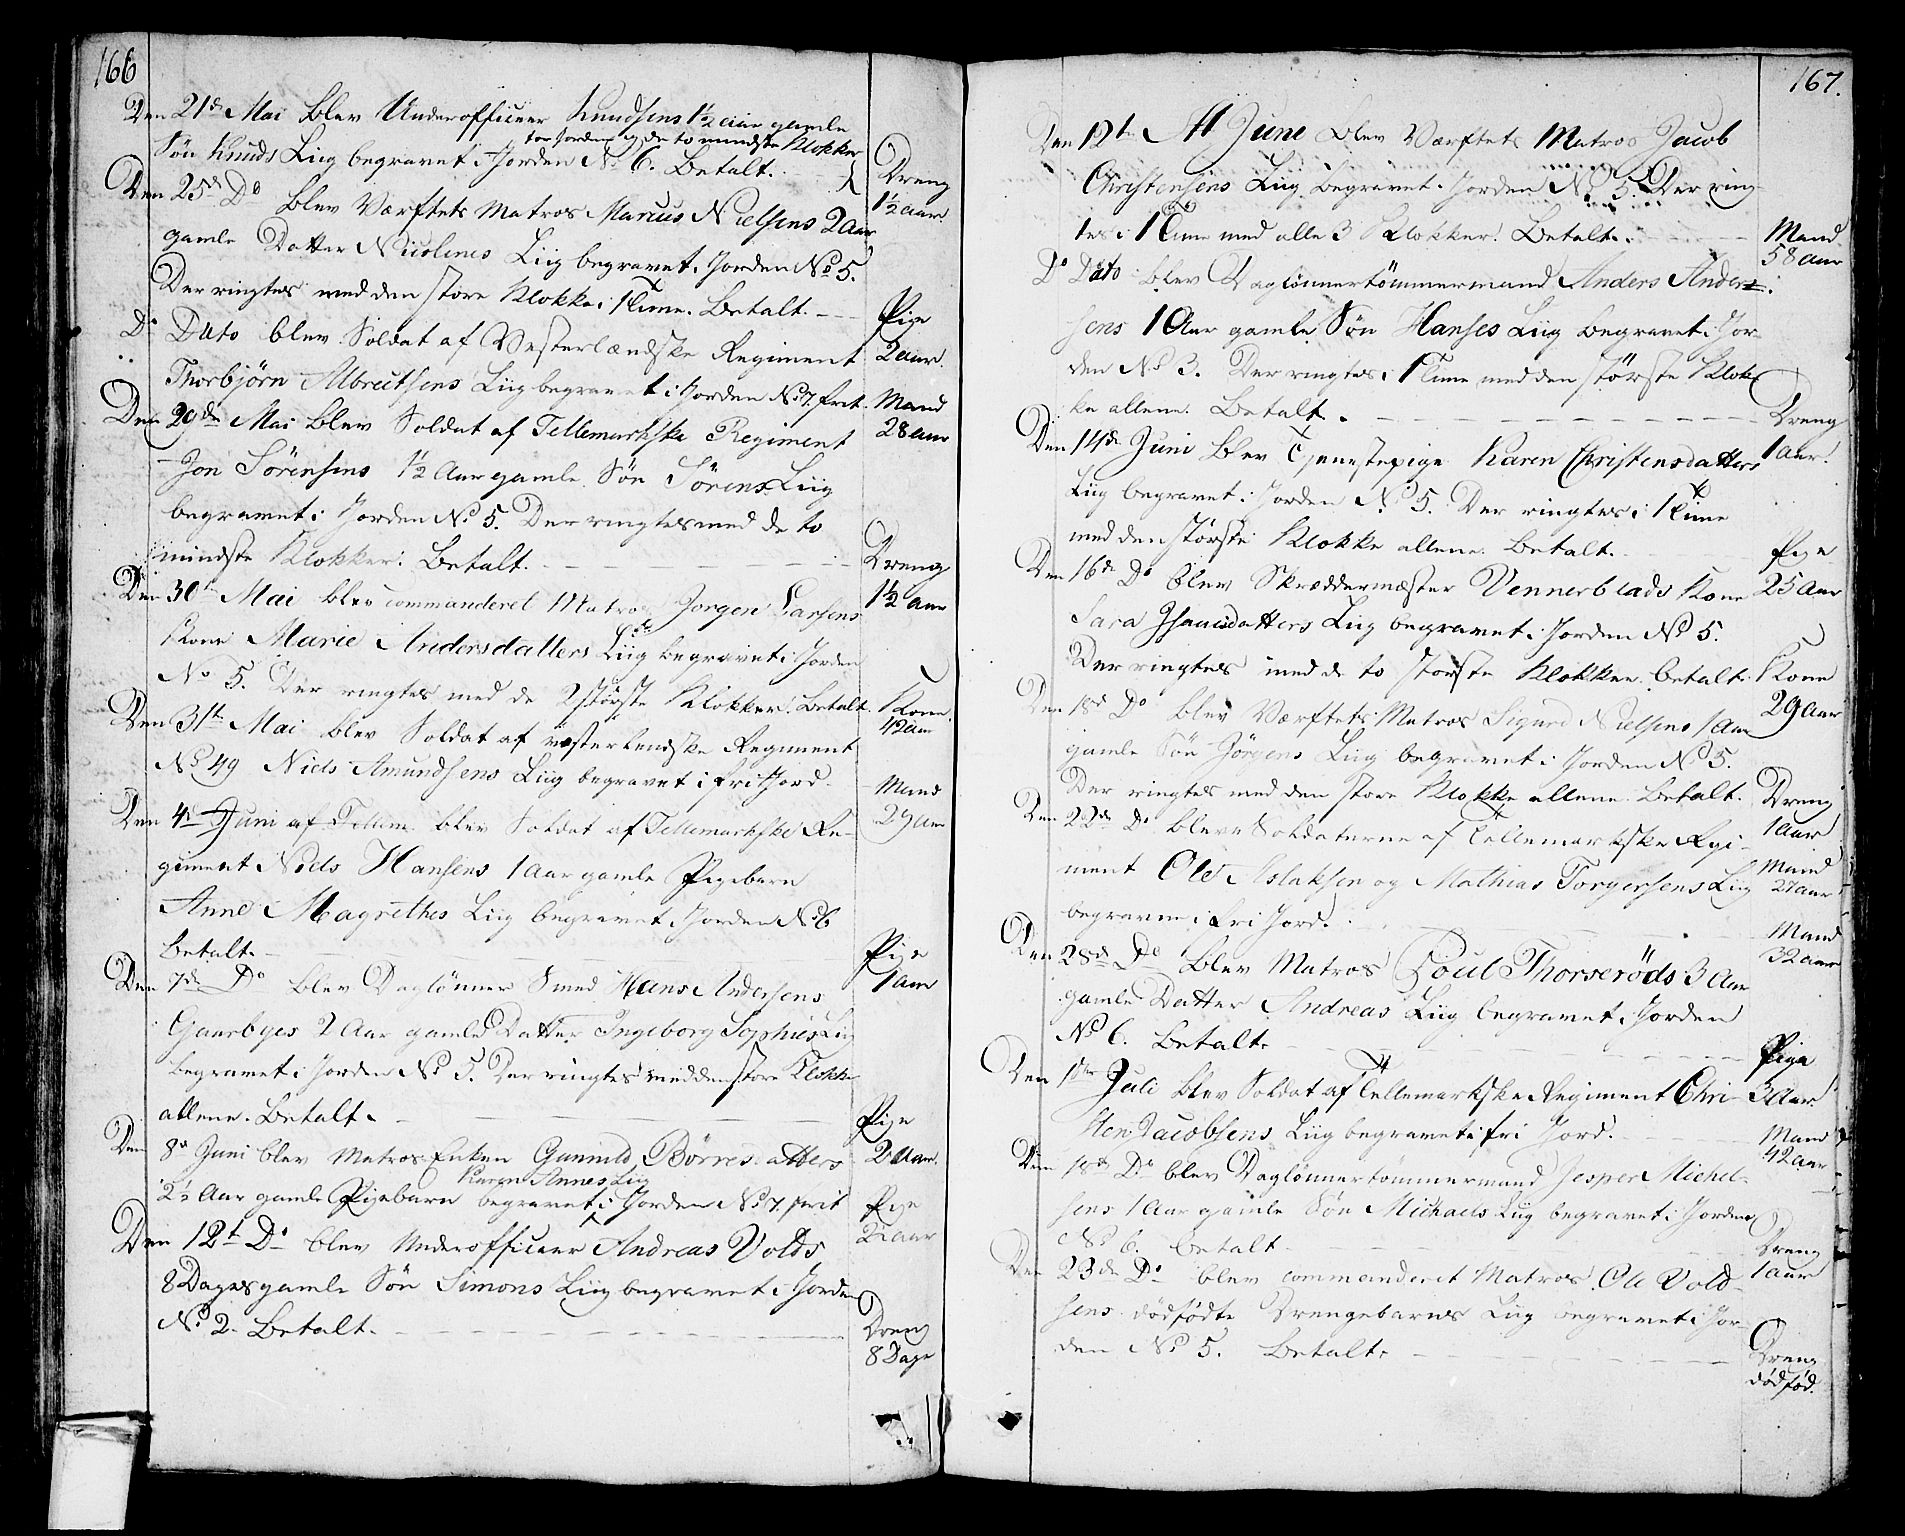 166
Den 21de Mai blev Underofficeer Knudsens 1½ Aar gamle
for Jorden og de to mindste Klokker
Søn Knuds Liig begravet i Jorden No 6. Betalt.
Dreng
1½ Aar.
Den 25de Do blev Værftets Matros Marcus Nielsens 2 Aar
gamle Datter Nicolines Liig begravet i Jorden No 5.
Der ringtes med den store Klokke i 1 Time. Betalt.
Pige
2 Aar.
Do Dato blev Soldat af Vesterlændske Regiment
Thorbjørn Albrectsens Liig begravet i Jorden No 7. frit.
Mand
28 Aar
Den 29de Mai blev Soldat af Tellemarkske Regiment
Jon Sørensens 1½ Aar gamle Søn Sørens Liig
begravet i Jorden No 5. Der ringtes med de to
mindste Klokker. Betalt.
Dreng
1½ Aar
Den 30te Mai blev commanderet Matros Jørgen Larsens
Kone Marie Andersdatters Liig begravet i Jorden
No 5. Der ringtes med de 2 største Klokker. Betalt.
Kone.
42 Aar
Den 31te Mai blev Soldat af vesterlendske Regiment
No 49 Niels Amundsens Liig begravet i fri Jord.
Mand
29 Aar
Den 4de Juni af Tellem blev Soldat af Tellemarkske Re-
giment Niels Hansens 1 Aar gamle Pigebarn
Anne Magrethes Liig begravet i Jorden No 6
Betalt.
Pige
1 Aar
Den 7de Do blev Daglønner Smed Hans Andersens
Gaarbyes 2 Aar gamle Datter Ingeborg Sophies Liig
begravet i Jorden No 5. Der ringtes med den store Klokke
allene. Betalt.
Pige
2 Aar.
Den 8de Juni blev Matros Enken Gunnild Børresdatters
Karen Annes Liig
2½ Aar gamle Pigebarn begravet i Jorden No 7. frit
Pige
2½ Aar
Den 12te Do blev Underofficeer Andreas Volds
8 Dages gamle Søn Simons Liig begravet i Jorden
No 2. Betalt.
Dreng
8 Dage
167.
Den 12te Juni blev Værftets Matros Jacob
Christensens Liig begravet i Jorden No 5. Der ring-
tes i 1 Time med alle 3 Klokker. Betalt.
Mand
58 Aar
Do Dato blev Daglønnertømmermand Anders Ander-
sens 1 Aar gamle Søn Hanses Liig begravet i Jor-
den No 3. Der ringtes i 1 Time med den største Klok-
ke allene. Betalt.
Dreng
1 Aar.
Den 14de Juni blev Tjenestepige Karen Christensdatters
Liig begravet i Jorden No 5. Der ringtes i 1 Time
med den største Klokke allene. Betalt.
Pige
25 Aar
Den 16de Do blev Skræddermæster Vennerblads Kone
Sara Isaacsdatters Liig begravet i Jorden No 5.
Der ringtes med de to største Klokker. betalt.
Kone
29 Aar
Den 18de Do blev Værftets Matros Sigurd Nielsens 1 Aar
gamle Søn Jørgens Liig begravet i Jorden No 5.
Der ringtes med den store Klokke allene. Betalt.
Dreng
1 Aar
Den 22de Do bleve Soldaterne af Tellemarkske Regi-
ment Ole Aslaksen og Mathias Torgersens Liig
begravne i fri Jord.
Mand
27 Aar
Mand
32 Aar
Den 28de Do blev Matros Poul Thorserøds 3 Aar
gamle Datter Andreas Liig begravet i Jorden
No 6. Betalt.
Pige
3 Aar.
Den 1ste Juli blev Soldat af Tellemarkske Regiment Chri-
sten Jacobsens Liig begravet i fri Jord.
Mand
42 Aar
Den 18de Do blev Daglønnertømmermand Jesper Michel-
sens 1 Aar gamle Søn Michaels Liig begravet i Jorden
No 6. betalt
Dreng
1 Aar
Den 23de Do blev commanderet Matros Ole Vold-
sens dødfødte Drengebarns Liig begravet i Jor-
den No 5. Betalt.
Dreng
dødfød.